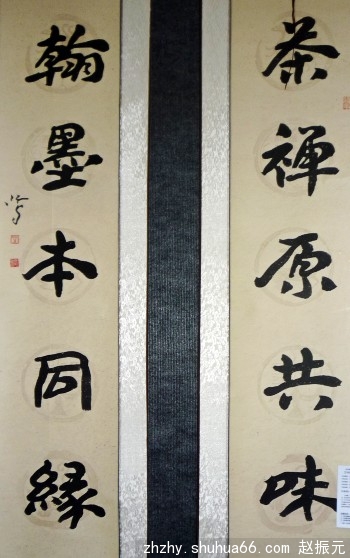 茶禅原共味
翰墨本同縁
zhzhy.shuhua66.com 赵振元